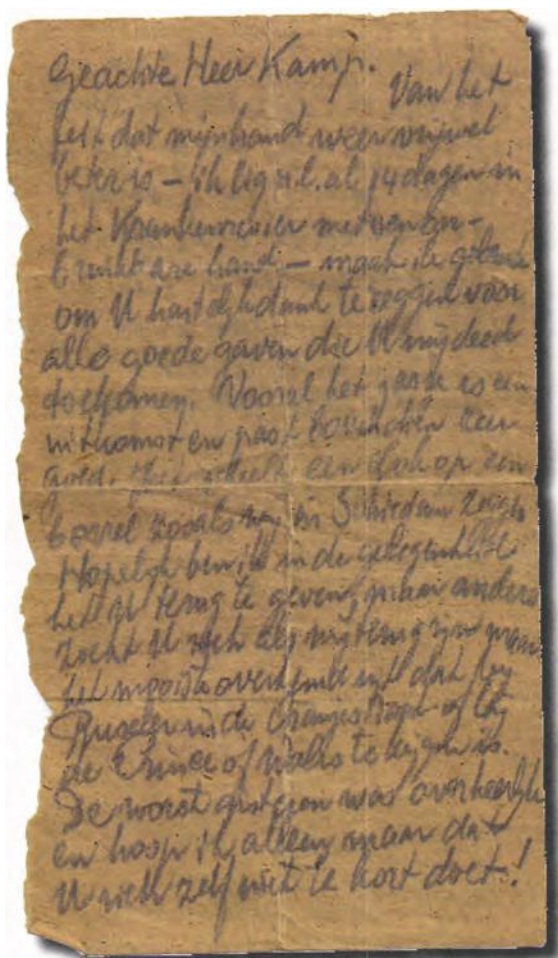 Geachte Heer Kamp.
Van het
feit dat mijn hand weer vrijwel
beter is – ik lig n.l. al 14 dagen in
het Krankenrevier met een on-
bruikbare hand – maak ik gebruik
om U hartelijk dank te zeggen voor
alle goede gaven die U mij deed
toekomen. Vooral het jasje is een
uitkomst en past bovendien zeer
goed. een dak op een
borrel zooals wij in Schiedam zeggen
Hopelijk ben ik in de gelegenheid
het U terug te geven, maar anders
zoekt U zich bij mij terug voor maar
het mooiste overhemd uit dat bij
in de Oranjestraat of bij
de Prince of Wales te krijgen is.
De worst gisteren was overheerlijk
en hoop ik alleen maar dat
U zich zelf niet te kort doet!